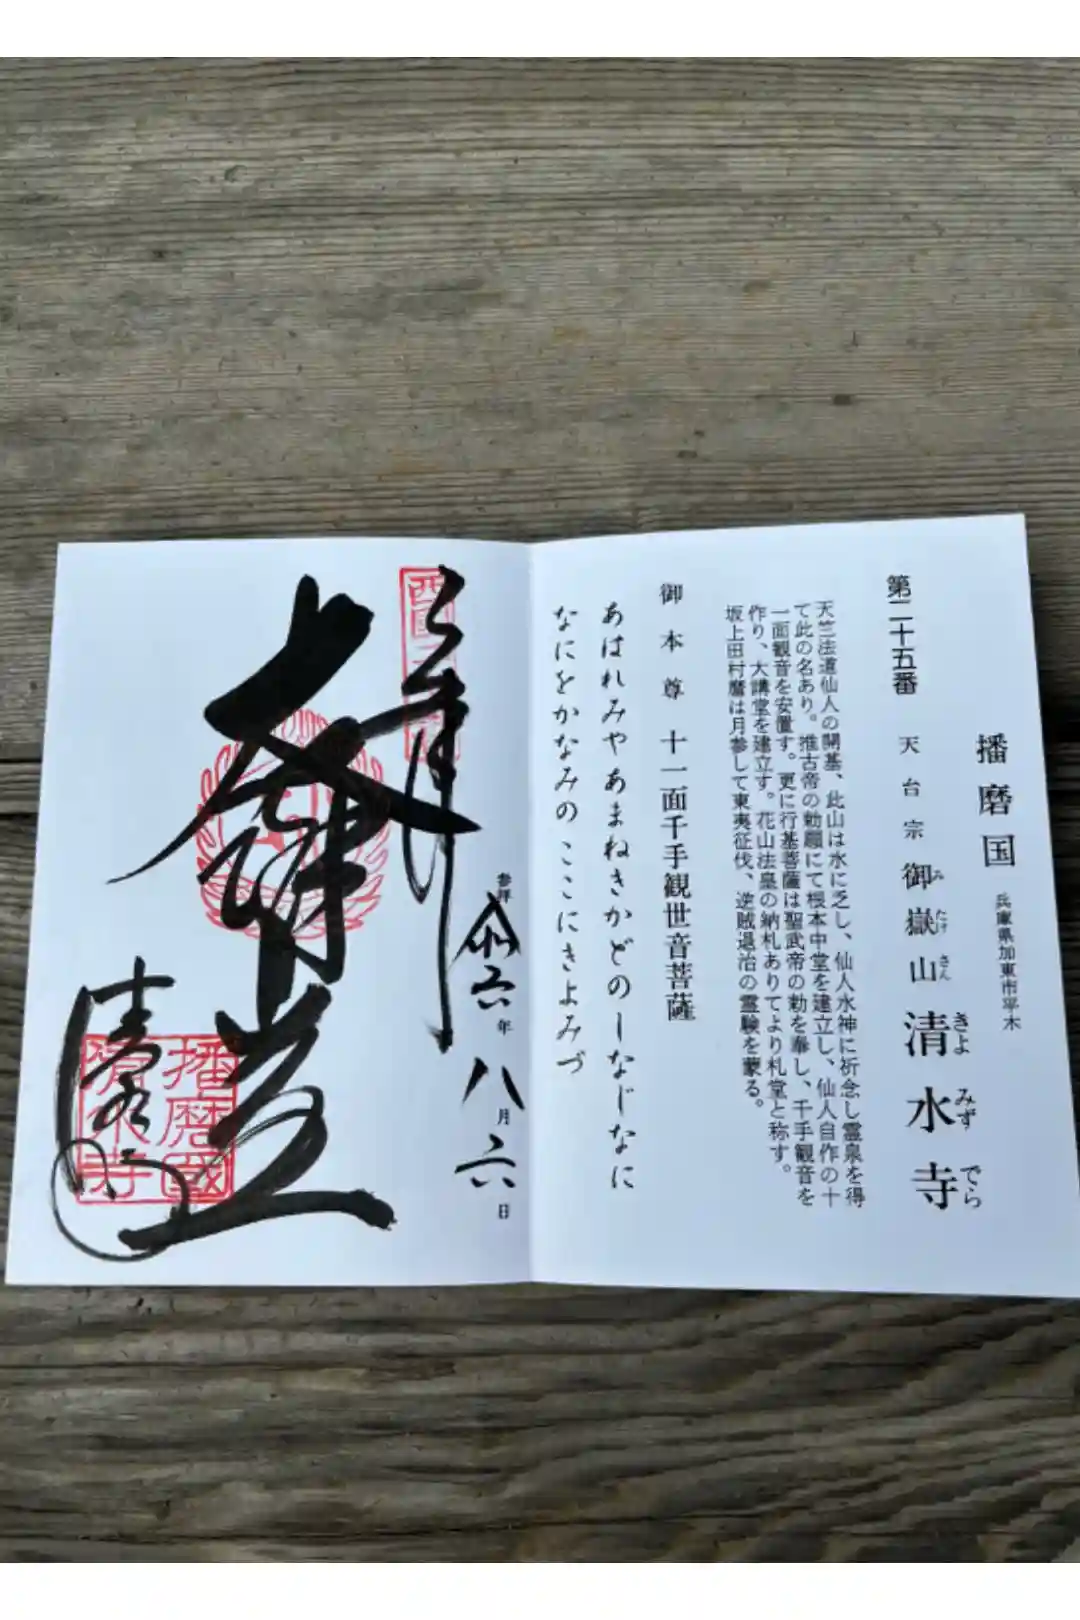 播磨国 兵庫県加東市平木
第二十五番 天台宗 御嶽山 清水寺
みたけさん きよみずでら
天竺法道仙人の開基、此山は水に乏し、仙人水神に祈念し霊泉を得
て此の名あり。推古帝の勅願にて根本中堂を建立し、仙人自作の十
一面観音を安置す。更に行基菩薩は聖武帝の勅を奉し、千手観音を
作り、大講堂を建立す。花山法皇の納札ありてより札堂と称す。
坂上田村麿は月参して東夷征伐、逆賊退治の霊験を蒙る。
御本尊 十一面千手観世音菩薩
あはれみやあまねきかどのしなじなに
なにをかなみのここにきよみづ
参拝 令和六年八月六日
奉拝
大講堂
清水寺
播磨國
清水寺